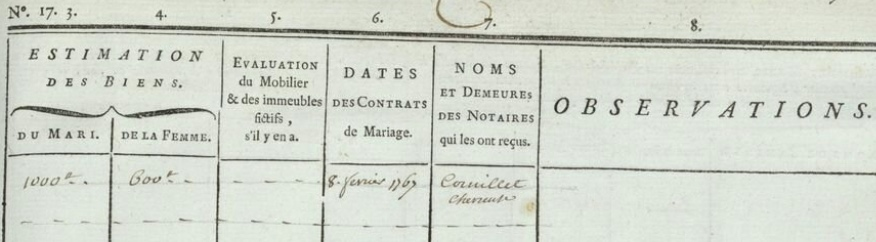 Nº. 17. 3. 4. 5. 6. 7. 8.
ESTIMATION
DES BIENS.
DU MARI. DE LA FEMME.
EVALUATION
du Mobilier
& des immeubles
fictifs,
s'il y en a.
DATES
DES CONTRATS
de Mariage.
NOMS
ET DEMEURES
DES NOTAIRES
qui les ont reçus.
OBSERVATIONS.
1000ᵗᵗ. 600ᵗᵗ. 8. fevrier 1767